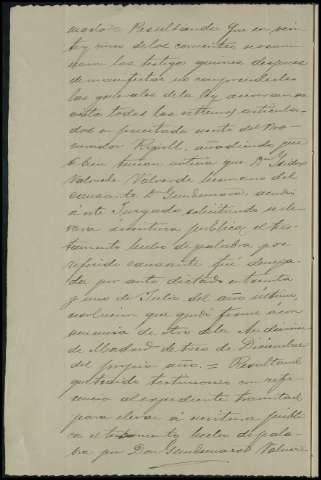 mado = Resultando Que en vein
ty uno de los corrientes
los testigos quienes despues
de manifestar no comprenderles
las generales de la ley
todos los estremos articula-
dos en precitado escrito del Pro-
curador Ripoll, añadiendo que
tienen entera que Dn Isidro
Valverde hermano del
causante Dn Gumersindo acudió
á este Juzgado solicitando se ele-
vara á escritura pública el tes-
tamento hecho de palabra por
referido causante fué denega-
da por auto dictado en treinta
y uno de Julio del año último,
resolucion que quedó firme
de la Audiencia
de Madrid de tres de Diciembre
del propio año. = Resultando
testimonio con refe-
rencia al espediente tramitado
para elevar á escritura públi-
ca el testamento hecho de pala-
bra por Don Gumersindo